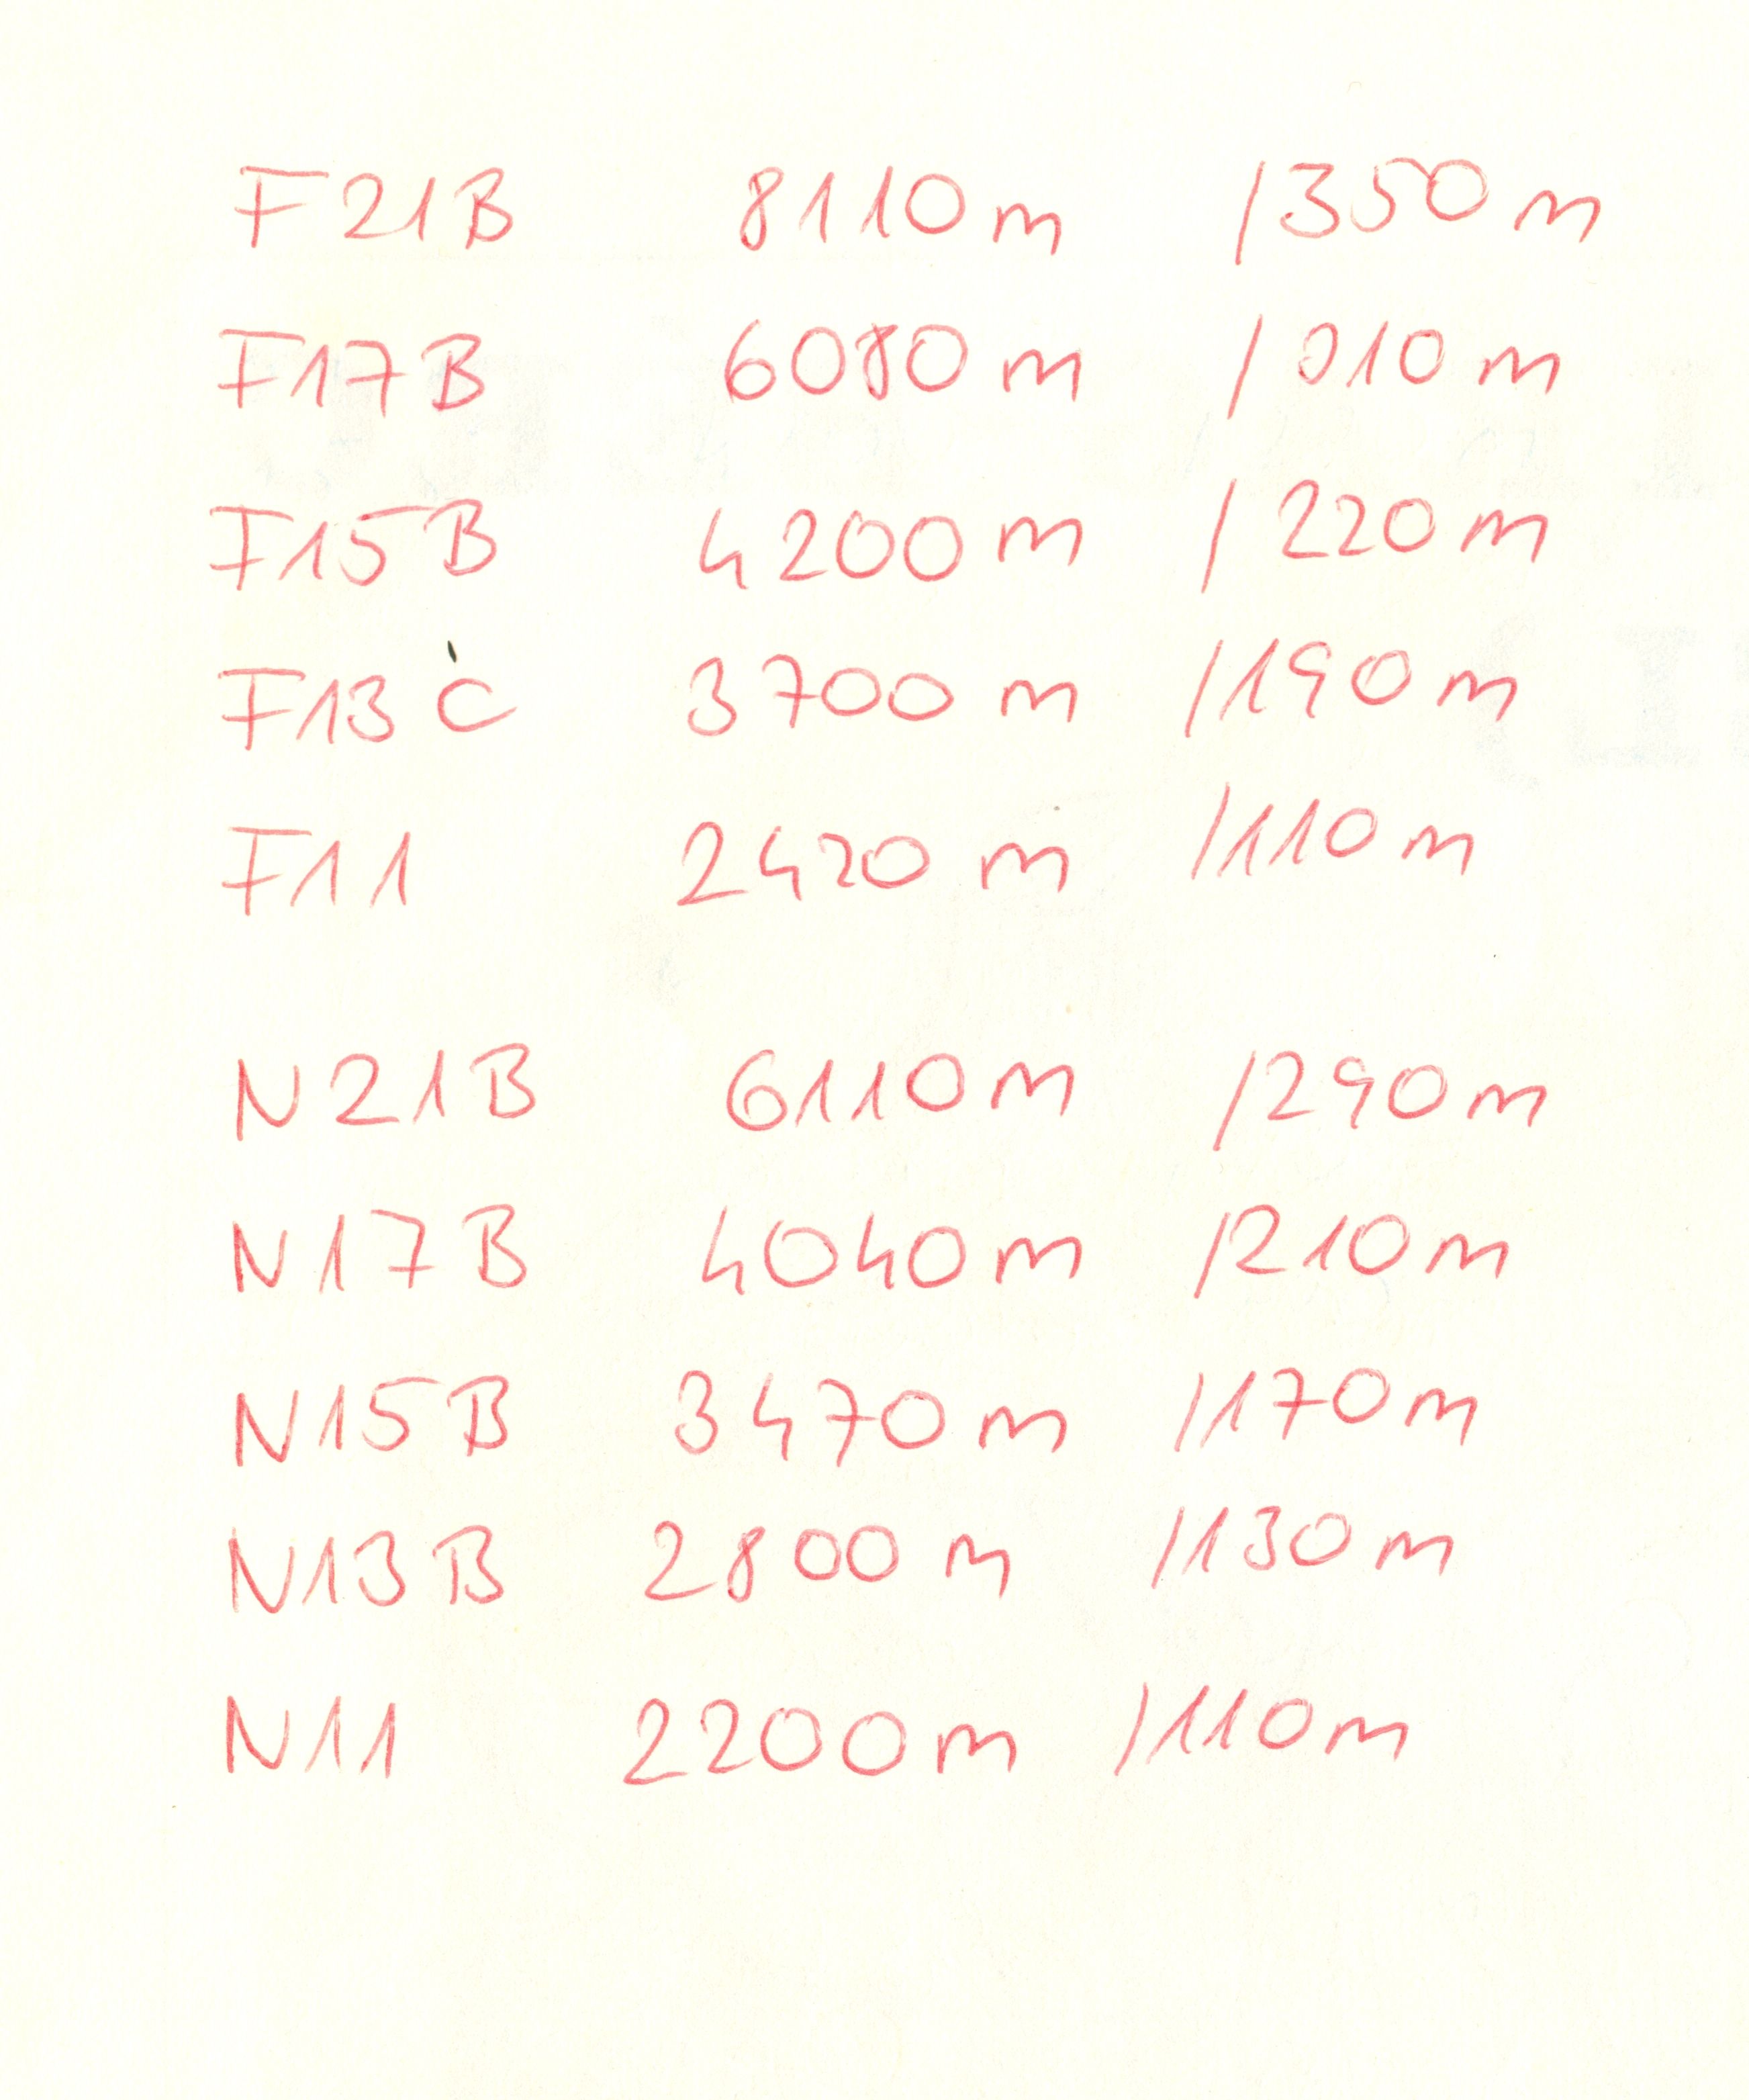 F21B 8110m /350m
F17B 6080m /010m
F15B 4200m /220m
F13C 3700m /190m
F11 2420m /110m
N21B 6110m /290m
N17B 4040m /210m
N15B 3470m /170m
N13B 2800m /130m
N11 2200m /110m